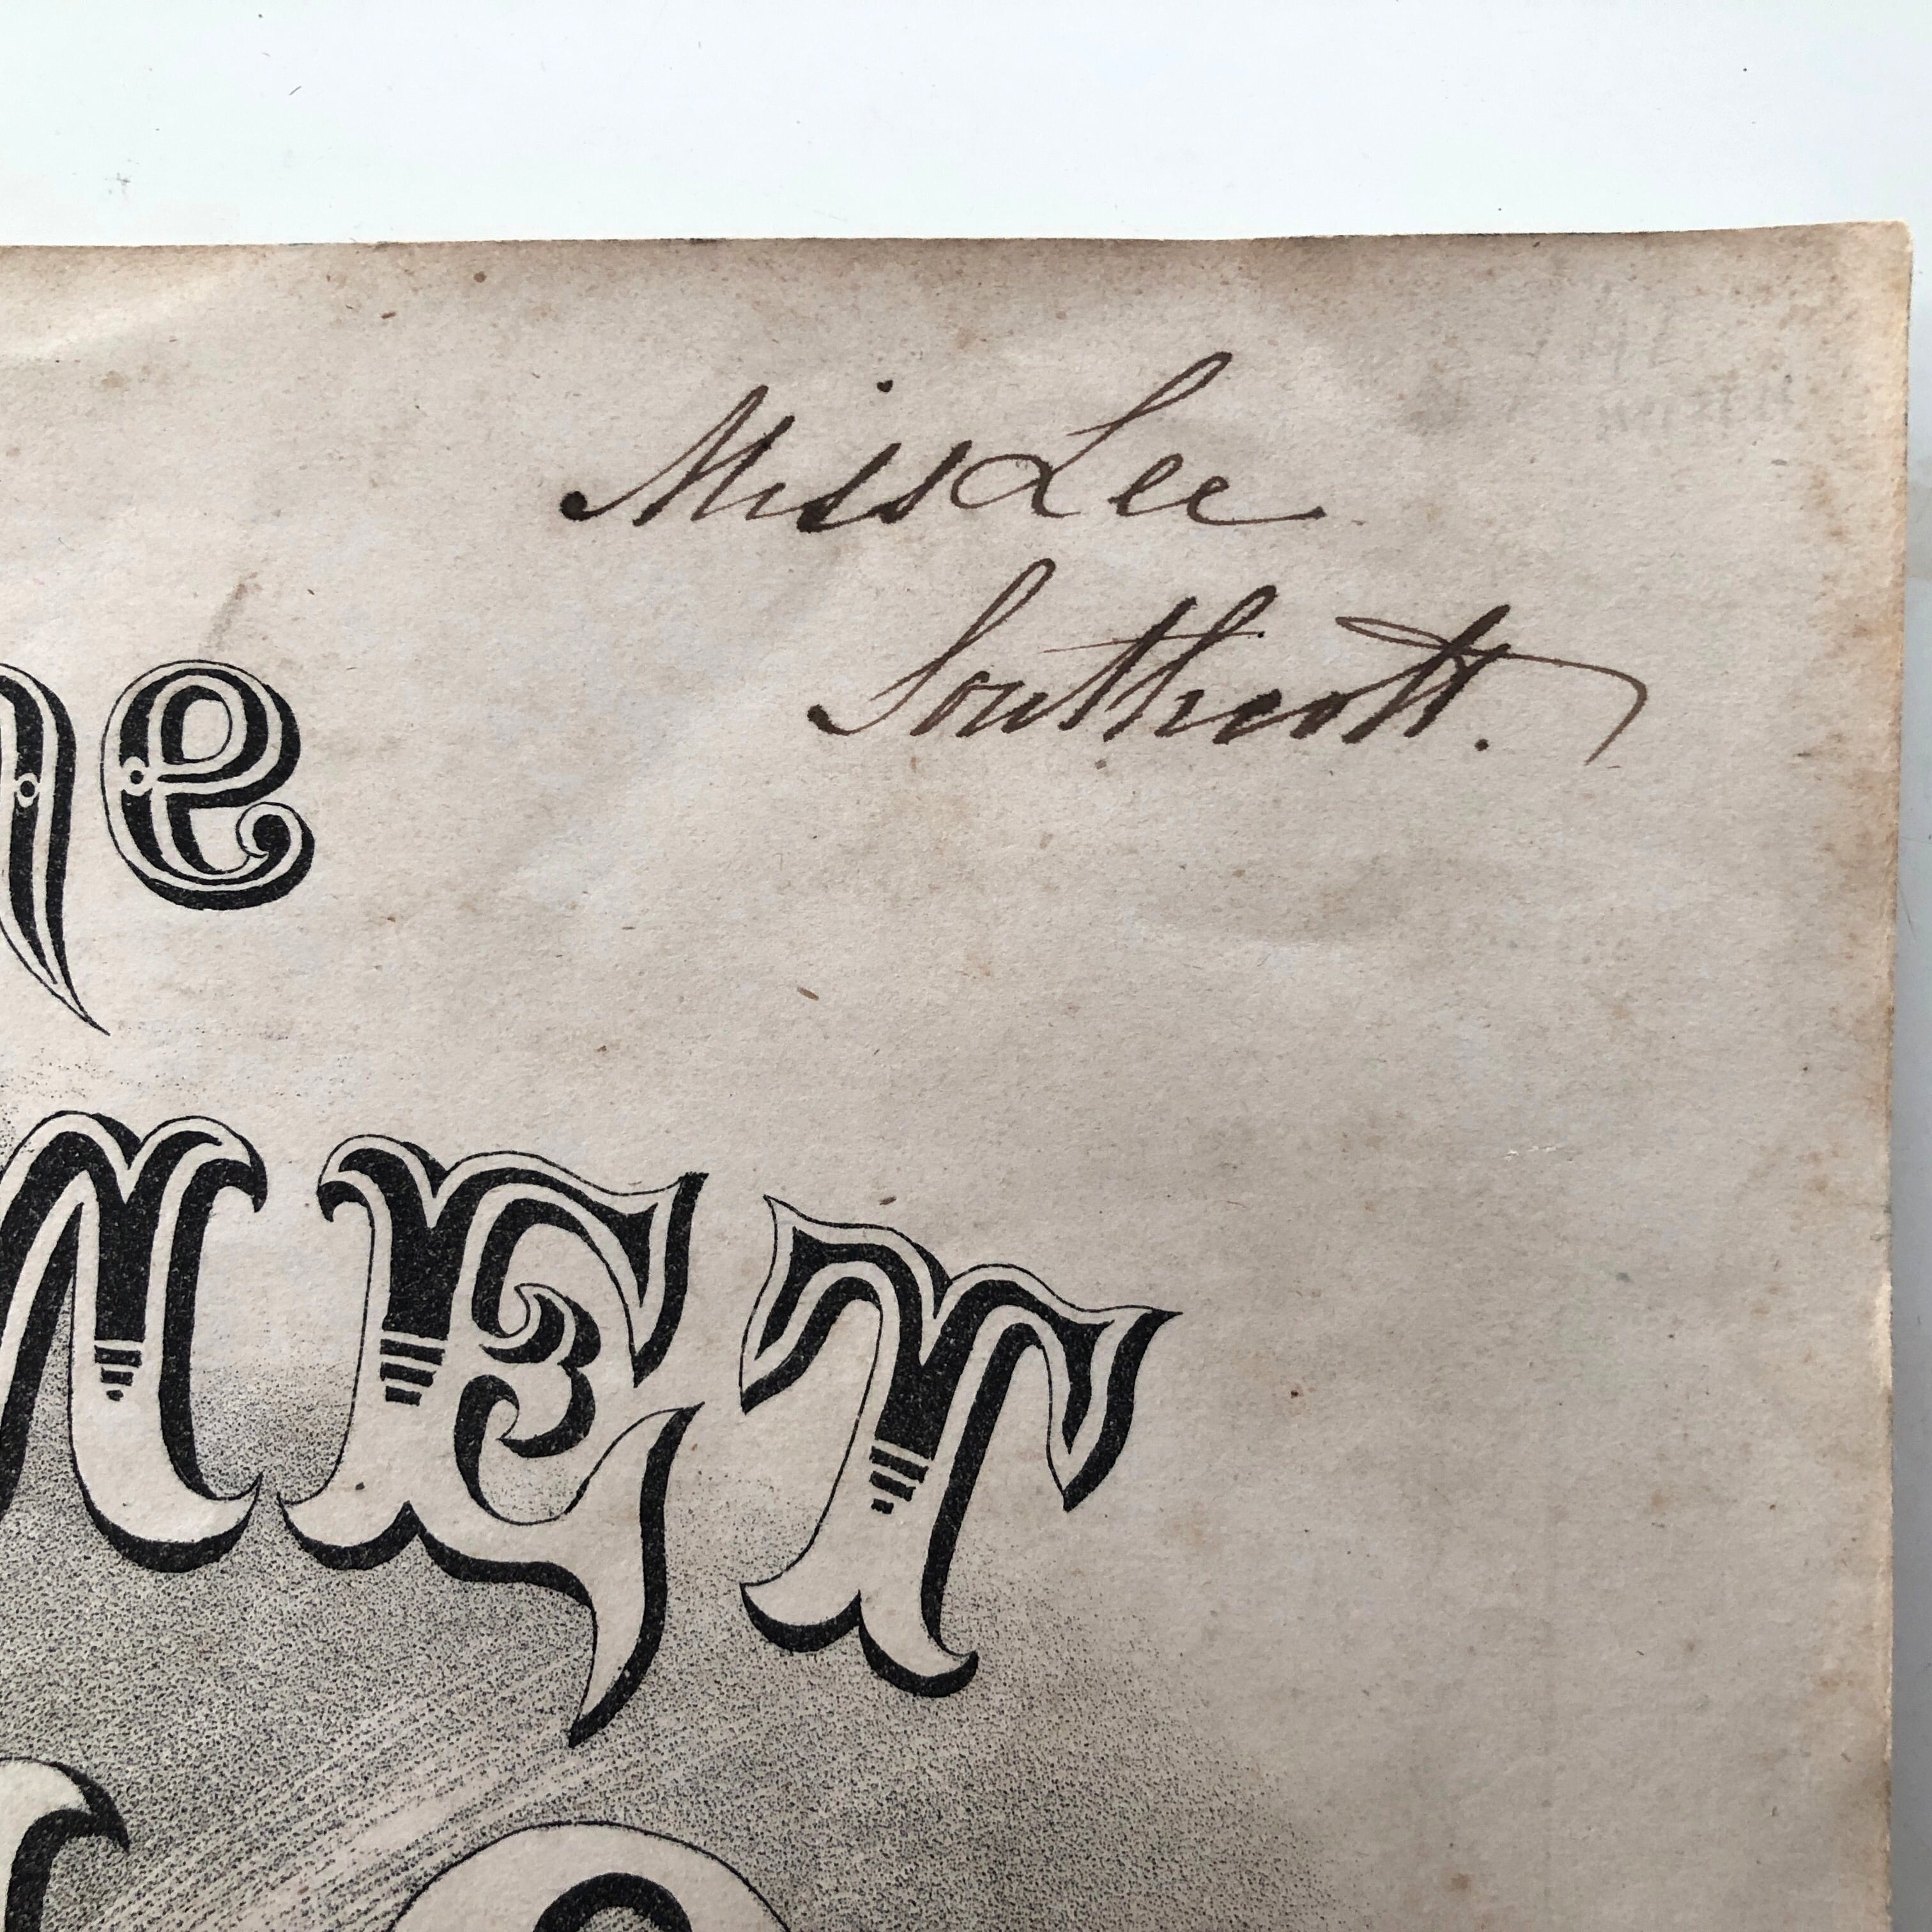 Miss Lee
Southcott.
he
NET